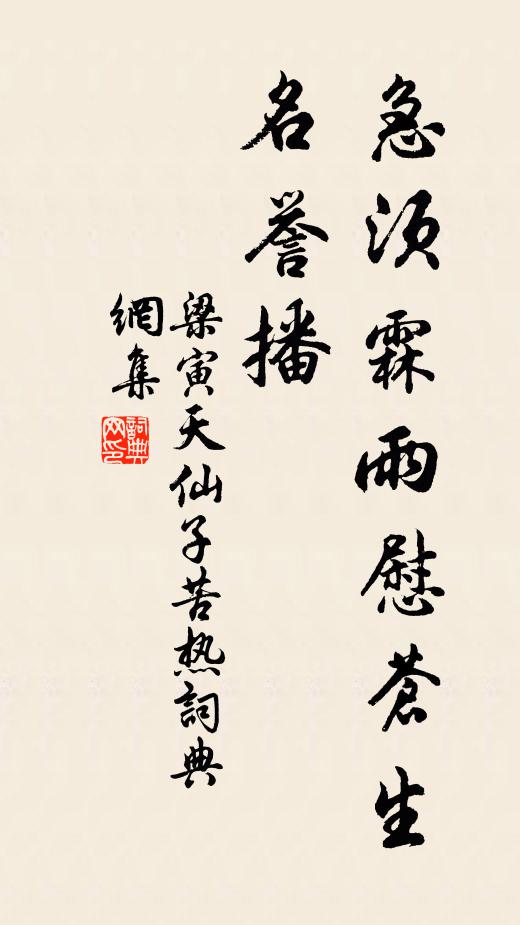 急须霖雨慰蒼生
名誉播
梁寅天仙子苦热詞典
網集
詞典
网印